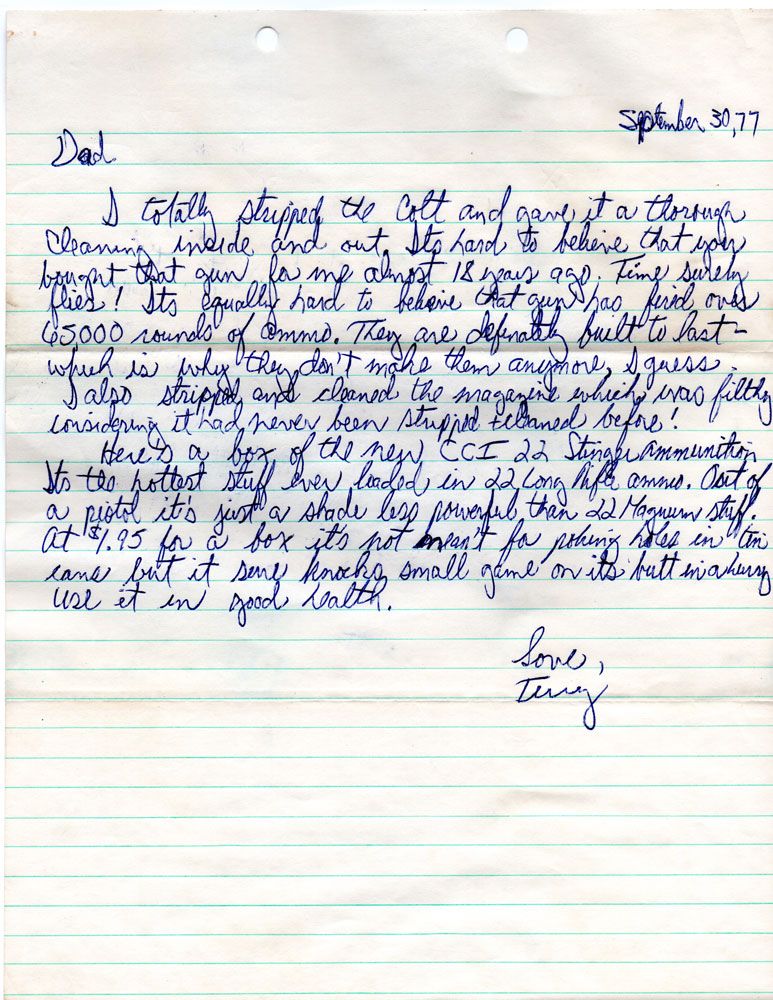 September 30, 77
Dad
I totally stripped the Colt and gave it a thorough
cleaning inside and out. Its hard to believe that you
bought that gun for me almost 18 years ago. Time surely
flies! Its equally hard to believe that gun has fired over
65000 rounds of ammo. They are definately built to last -
which is why they don't make them anymore, I guess.
I also stripped and cleaned the magazine which was filthy
considering it had never been stripped + cleaned before!
Here's a box of the new CCI 22 Stinger ammunition
Its the hottest stuff ever loaded in 22 Long Rifle ammo. Out of
a pistol it's just a shade less powerful than 22 Magnum stuff.
At $1.95 for a box it's not meant for poking holes in tin
cans but it sure knocks small game on its butt in a hurry
Use it in good health.
Love,
Terry